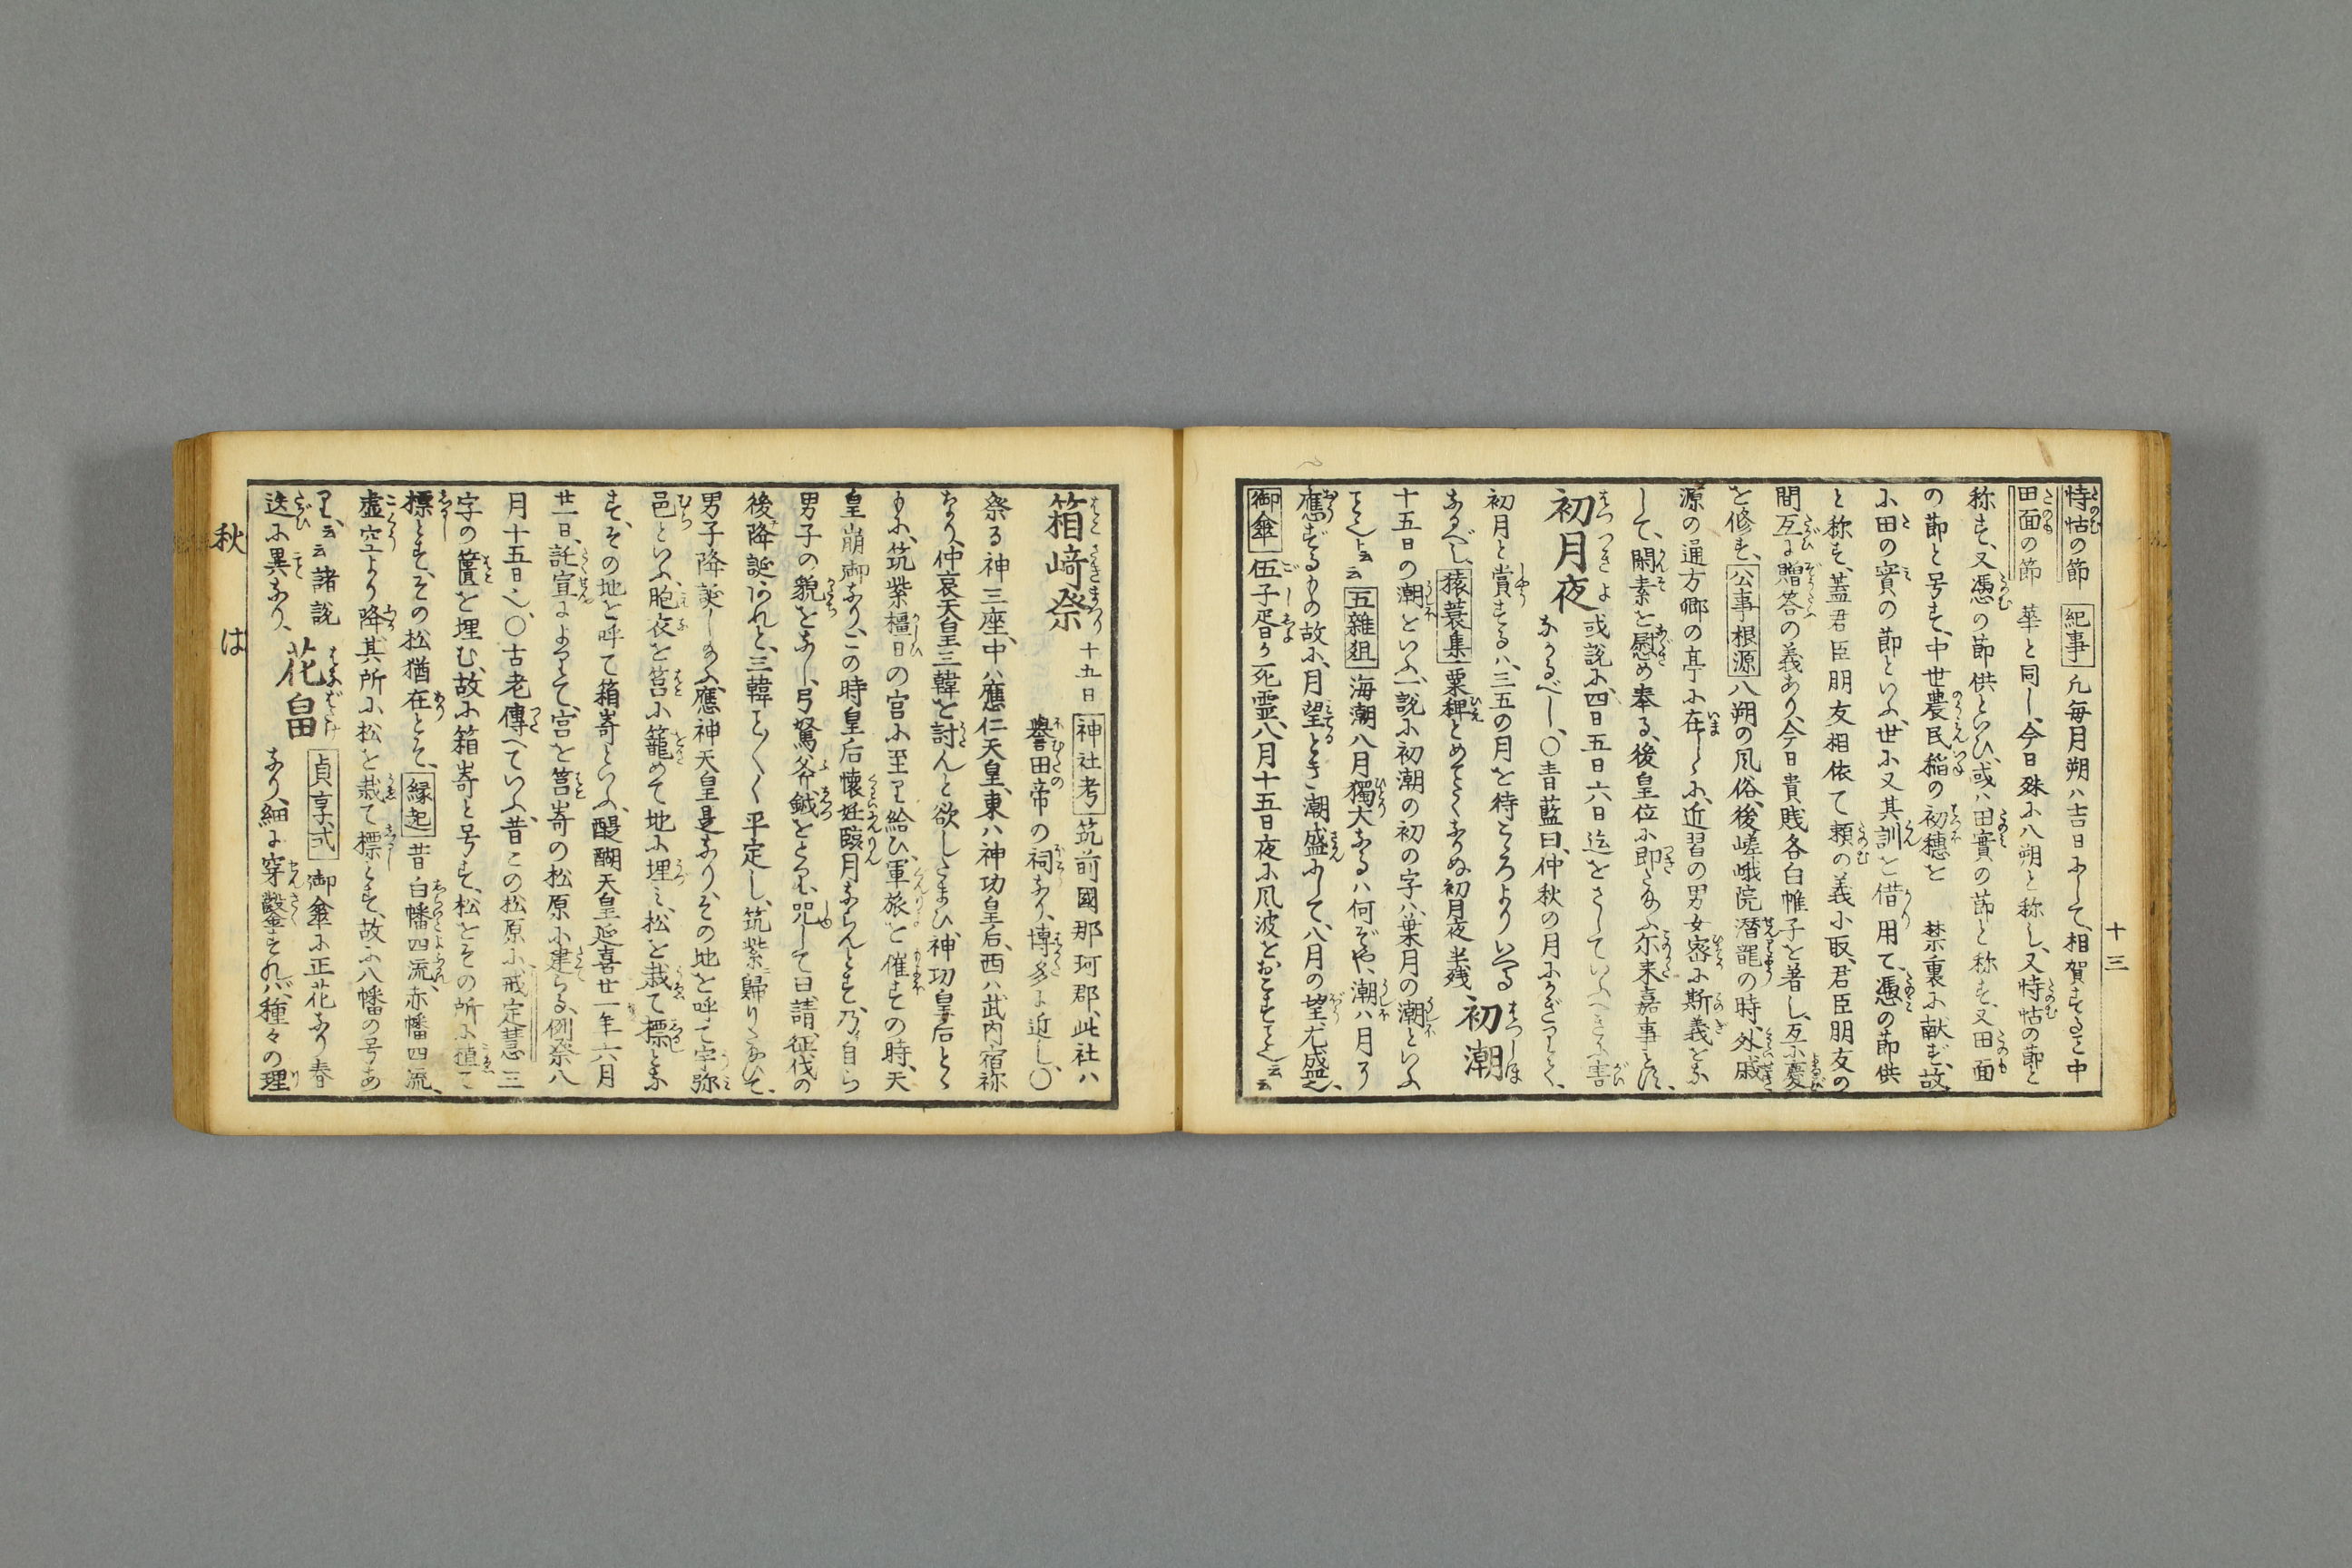 十三
恃怙の節 紀事 凡毎月朔ハ吉日にして、相賀するに中
田面の節 華と同し、今日殊に八朔と称し、又恃怙の節と
称す、又憑の節供といひ、或ハ田實の節と称す、又田面
の節と号す、中世農民稲の初穂を 禁裏に献ず、故
に田の實の節といふ、世に又其訓を借用て、憑の節供
と称す、蓋君臣朋友相依て頼の義に取、君臣朋友の
間互に贈答の義あり、今日貴賎各白帷子を著し、互に慶
を修す、公事根源 八朔の風俗、後嵯峨院潜龍の時、外戚
源の通方卿の亭に在しゝに、近習の男女密に斯義をな
して、閑素を慰め奉る、後皇位に即給ふ尓来嘉事とす、
初月夜 或説に、四日五日六日迄をさしていふべきか害
なかるべし、〇青藍曰、仲秋の月にかぎつことく、
初月と賞するハ、三五の月を待ところよりいへる
なるべし、猿蓑集 粟稗とめでたくなりぬ初月夜 半残 初潮
十五日の潮といふ一説に初潮の初の字ハ、葉月の潮といふ
こと也と云云 五雜爼 海潮八月獨大なるハ何ぞや、潮ハ月に
應ずるもの故に、月望とき潮盛にして、八月の望尤盛也、
御傘 伍子胥が死霊、八月十五日夜に風波をおこすと也云云
箱﨑祭 十五日 神社考 筑前國那珂郡、此社ハ
譽田帝の祠なり、博多に近し、〇
祭る神三座、中ハ應仁天皇、東ハ神功皇后、西ハ武内宿祢
なり、仲哀天皇三韓を討んと欲したまひ、神功皇后とゝ
もに、筑紫橿日の宮に至り給ひ、軍旅を催すの時、天
皇崩御なり、この時皇后懐妊臨月ならんとす、乃自ら
男子の貌をなし、弓驽斧鉞をとらし、咒して曰、請、征伐の
後降誕あれと、三韓こと〱く平定し、筑紫歸りたまひて、
男子降誕したまふ、應神天皇是なり、その地を呼て宇弥
邑といふ、胞衣を筥に籠めて地に埋ミ、松を栽て標とな
す、その地を呼て箱嵜といふ、醍醐天皇延喜廿一年六月
廿一日、託宣によりて、宮を筥嵜の松原に建らる、例祭八
月十五日也、〇古老傳へていふ、昔この松原に、戒定慧三
字の篋を埋む、故に箱嵜と号す、松をその所に植て
標とす、その松猶在とぞ、縁起 昔白幡四流、赤幡四流、
虚空より降、其所に松を栽て標とす、故に八幡の号あ
り、云云 諸説 花畠 貞享式 御傘に正花なり春
迭に異なり、 なり、細に穿鑿すれバ、種々の理
秋 は